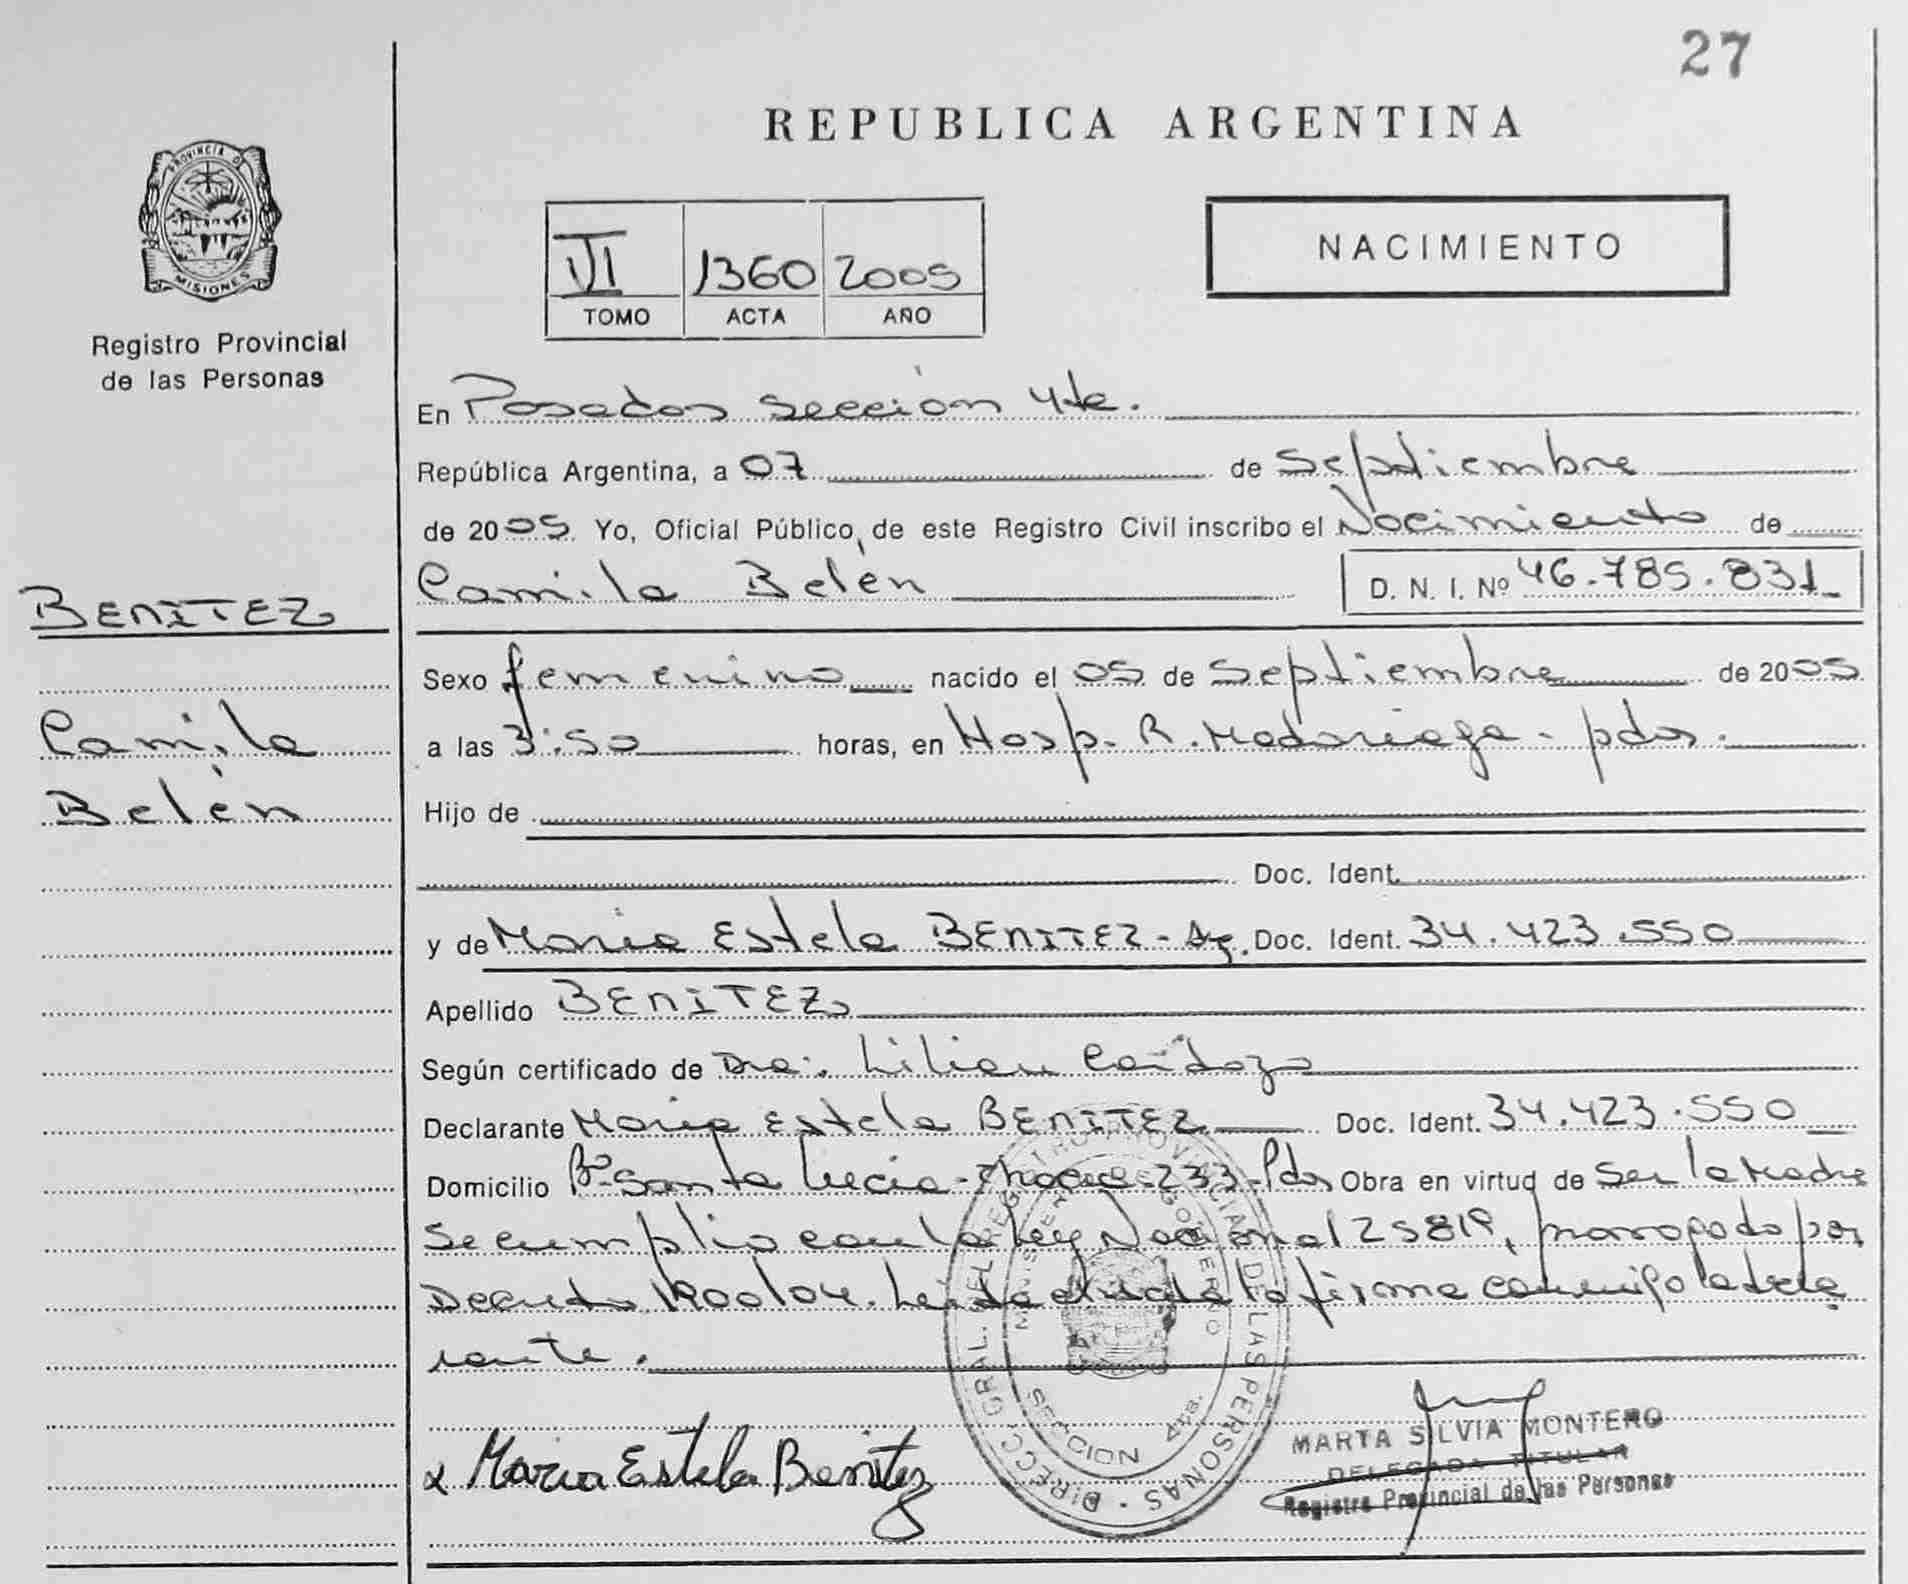 27
REPUBLICA ARGENTINA
PROVINCIA DE
MISIONES
Registro Provincial
de las Personas
VI 1360 2005
TOMO ACTA AÑO
NACIMIENTO
En Posadas sección 4ta.
República Argentina, a 07 de Septiembre
de 2005 Yo, Oficial Público, de este Registro Civil inscribo el Nacimiento de
Camila Belén D. N. I. Nº 46.785.831
BENITEZ
Camila
Belén
Sexo femenino nacido el 05 de Septiembre de 2005
a las 3:50 horas, en Hosp. R. Madariaga - pdas.
Hijo de
Doc. Ident.
y de Maria Estela BENITEZ - Ag. Doc. Ident. 34.423.550
Apellido BENITEZ
Según certificado de Dra. Lilian Cardozo
Declarante Maria Estela BENITEZ Doc. Ident. 34.423.550
Domicilio Bº Santa Lucia - 233 - Pdas Obra en virtud de Ser la Madre
Se cumplio con la Ley Nacional 25819, prorrogado por
Decreto 1900/04. Leida el acta la firma conmigo la decla
rante.
x Maria Estela Benitez
DIRECC. GRAL. DEL REGISTRO PROVINCIAL DE LAS PERSONAS
GOBIERNO
SECCION 4ta.
MARTA SILVIA MONTERO
DELEGADA TITULAR
Registro Provincial de las Personas